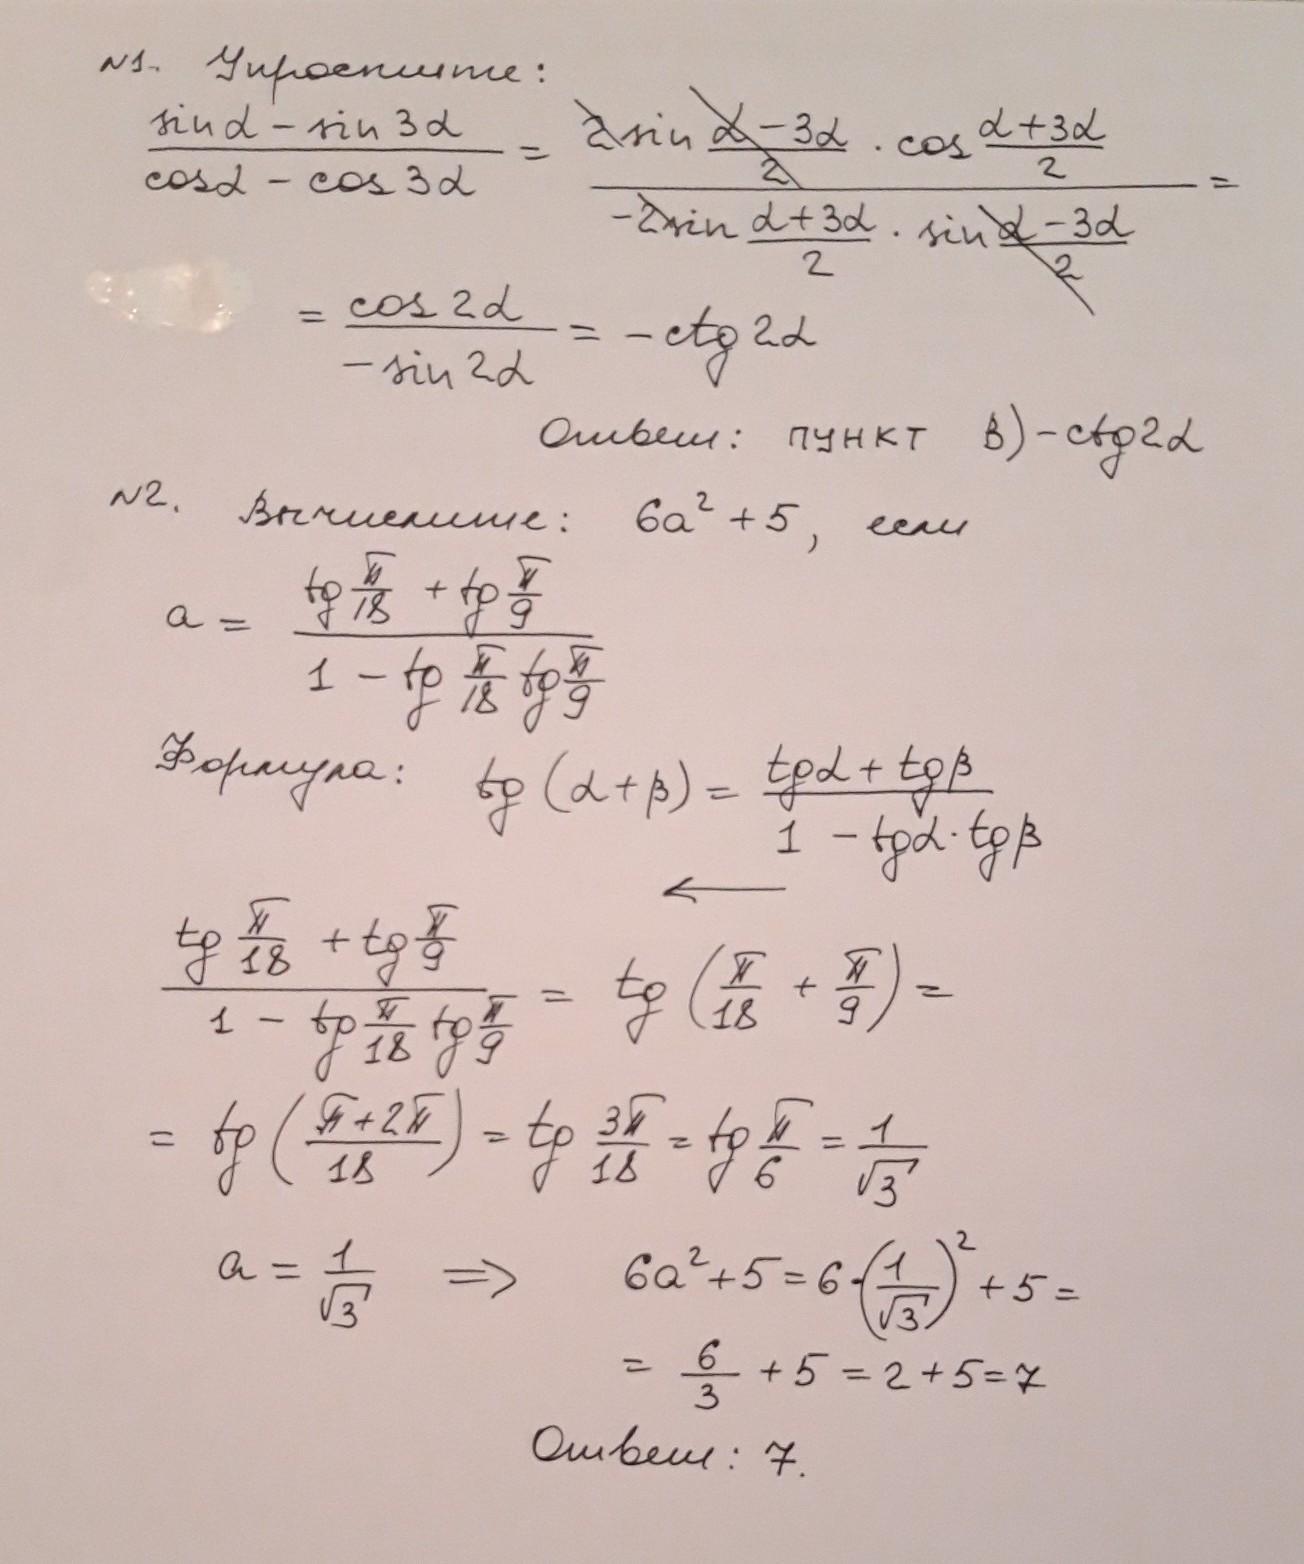 №1. Упростите:
(sinα - sin3α)/(cosα - cos3α) = (2sin (α-3α)/2 · cos (α+3α)/2)/(-2sin (α+3α)/2 · sin (α-3α)/2) =
= cos2α/(-sin2α) = -ctg2α
Ответ: пункт В) -ctg2α
№2. Вычислите: 6a² + 5, если
a = (tg π/18 + tg π/9)/(1 - tg π/18 tg π/9)
Формула: tg(α+β) = (tgα + tgβ)/(1 - tgα·tgβ)
←
(tg π/18 + tg π/9)/(1 - tg π/18 tg π/9) = tg(π/18 + π/9) =
= tg((π+2π)/18) = tg 3π/18 = tg π/6 = 1/√3
a = 1/√3 ⇒ 6a²+5 = 6·(1/√3)² + 5 =
= 6/3 + 5 = 2+5=7
Ответ: 7.